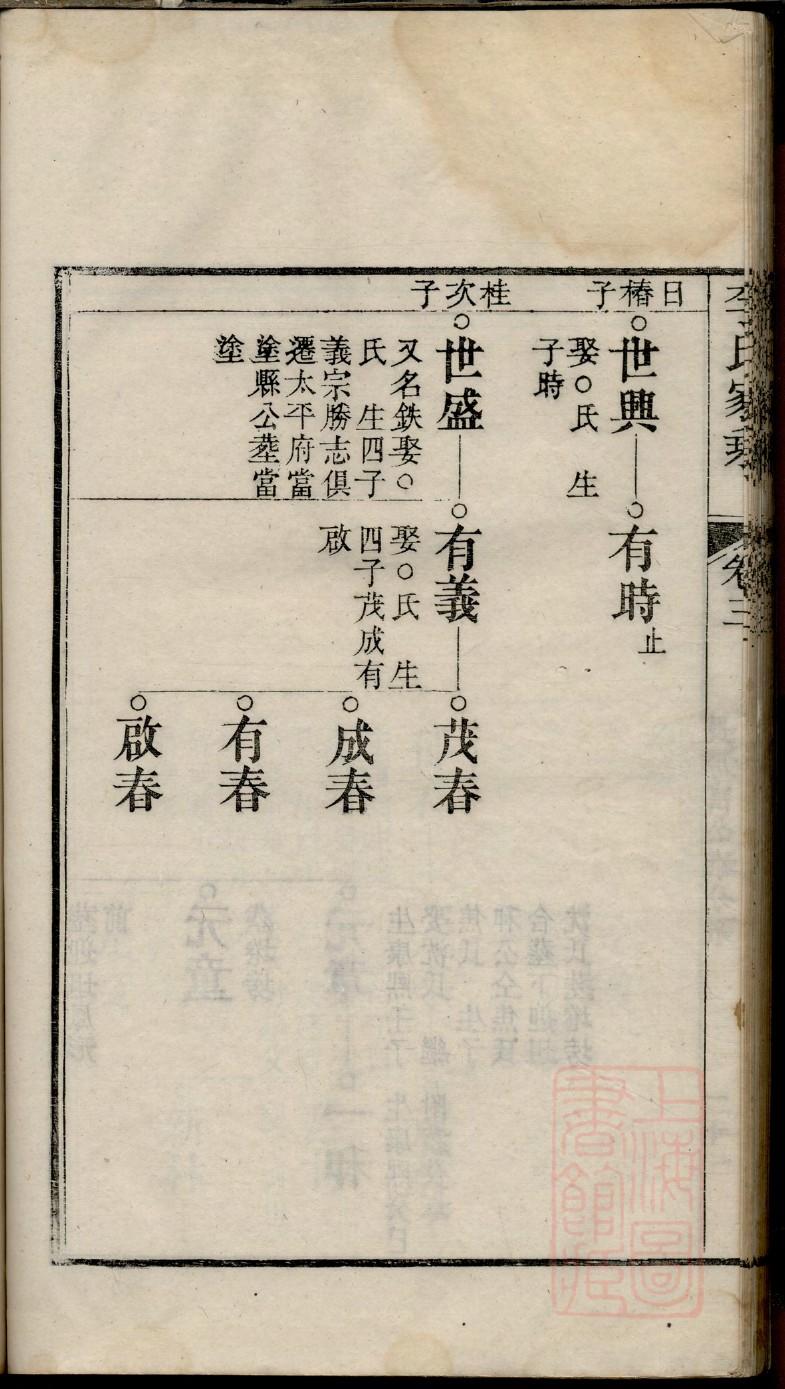 李氏家乘
卷三
日椿子
○世興
娶○氏　生
子時
○有時止
桂次子
○世盛
又名鉄娶○
氏　生四子
義宗勝志俱
遷太平府當
塗縣公塟當
塗
○有義
娶○氏　生
四子茂成有
啟
○茂春
○成春
○有春
○啟春
上海圖
書館藏